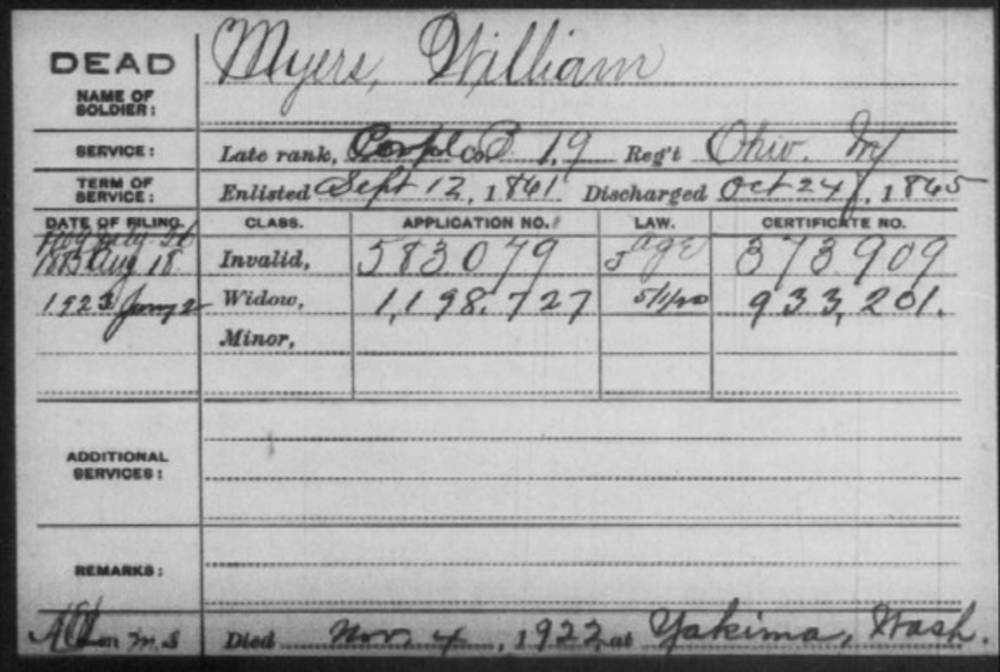 DEAD Myers, William
NAME OF
SOLDIER:
SERVICE: Late rank, Corpl Co. B, 19 Reg't Ohio. Inf
TERM OF
SERVICE: Enlisted Sept 12, 1861 Discharged Oct 24, 1865
DATE OF FILING. CLASS. APPLICATION NO. LAW. CERTIFICATE NO.
Aug 18 Invalid, 583.079 age 373.909
1923 Jany 2 Widow, 1,198.727 5/1/20 933,201.
Minor,
ADDITIONAL
SERVICES:
REMARKS:
Died Nov. 4, 1922, at Yakima, Wash.